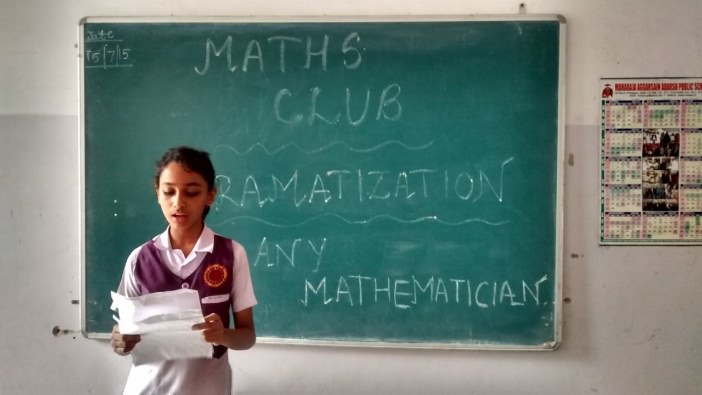 Date
15/7/15
MATHS
CLUB
RAMATIZATION
ANY
MATHEMATICIAN
MAHARAJA AGGARSAIN ADARSH PUBLIC SCH